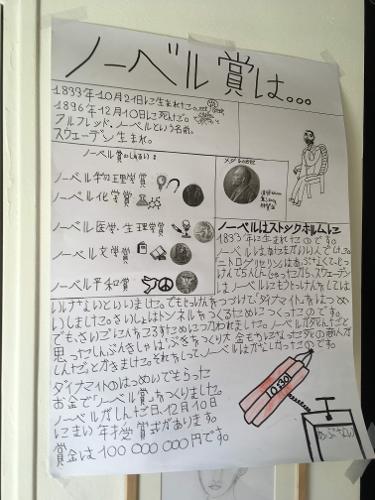 ノーベル賞は...
1833年10月21日に生まれた。
1896年12月10日に死んだ。
アルフレッド・ノーベルという名前。
スウェーデン生まれ。
ノーベル賞のしゅるい:
ノーベル物理学賞
ノーベル化学賞
ノーベル医学・生理学賞
ノーベル文学賞
ノーベル平和賞
メダルの
ノーベルはストックホルムに
1833年に生まれたのです。
ノーベルはあたまがいい人でした。
ニトログリセリンはあぶなくて、じっ
けんで5人しんじゃったから、スウェーデン
はノーベルにもうじっけんをしては
いけないといいました。でもじっけんをつづけて、ダイナマイトをはつめ
いしました。さいしょはトンネルをつくるためにつくったのです。
でも、さいごに人をころすためにつかわれました。ノーベルが死んだと
思ったしんぶんきしゃは「ぶきをつくり大金もちになった死の商人が
しんだ」とかきました。それをしって、ノーベルはかなしかったのです。
ダイナマイトのはつめいでもらった
お金でノーベル賞をつくりました。
ノーベルがしんだ日、12月10日
にまい年授賞式があります。
賞金は100 000 000円です。
0:30
あぶない